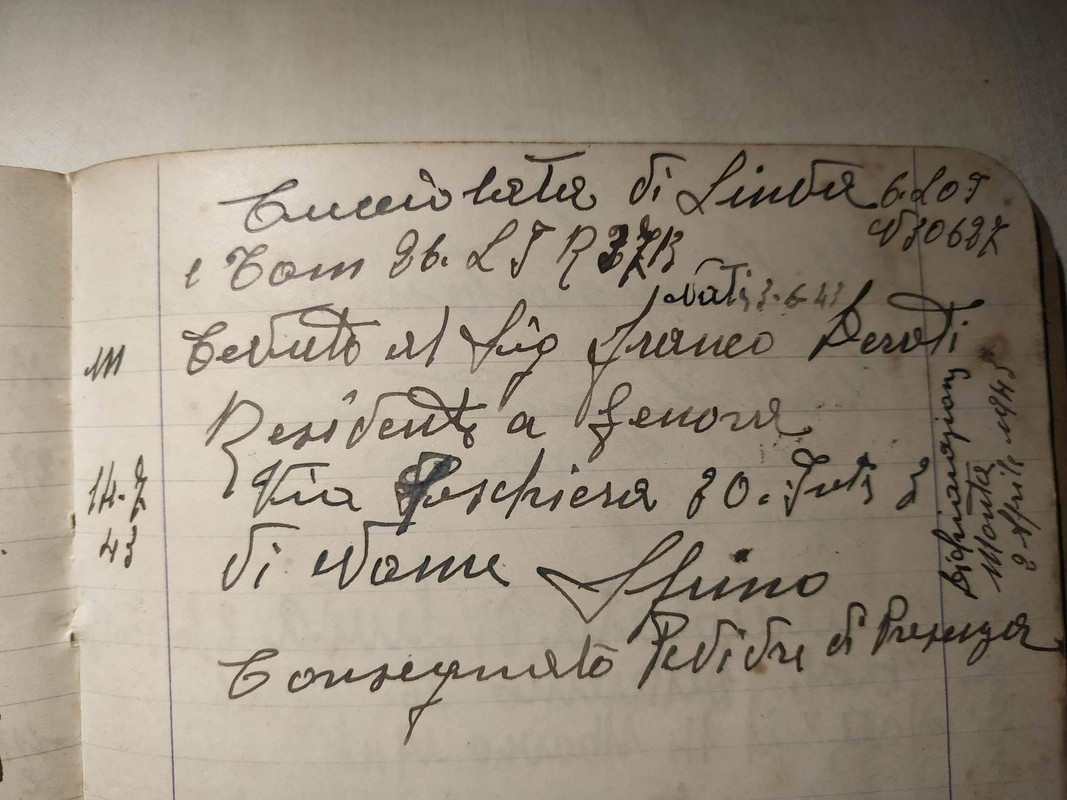 Cucciolata di Linda 6. LOT
N30627
e Tom 26. LT R 27B
Nati 3-6-43
m Ceduto al Sig Franco Peroti
Residente a Genova
14-7 Via Peschiera 30. Int. 2
43 di Nome Spino
Consegnato Pedidre di Presenza
Dichiarazione
Monta
2 Aprile 1943